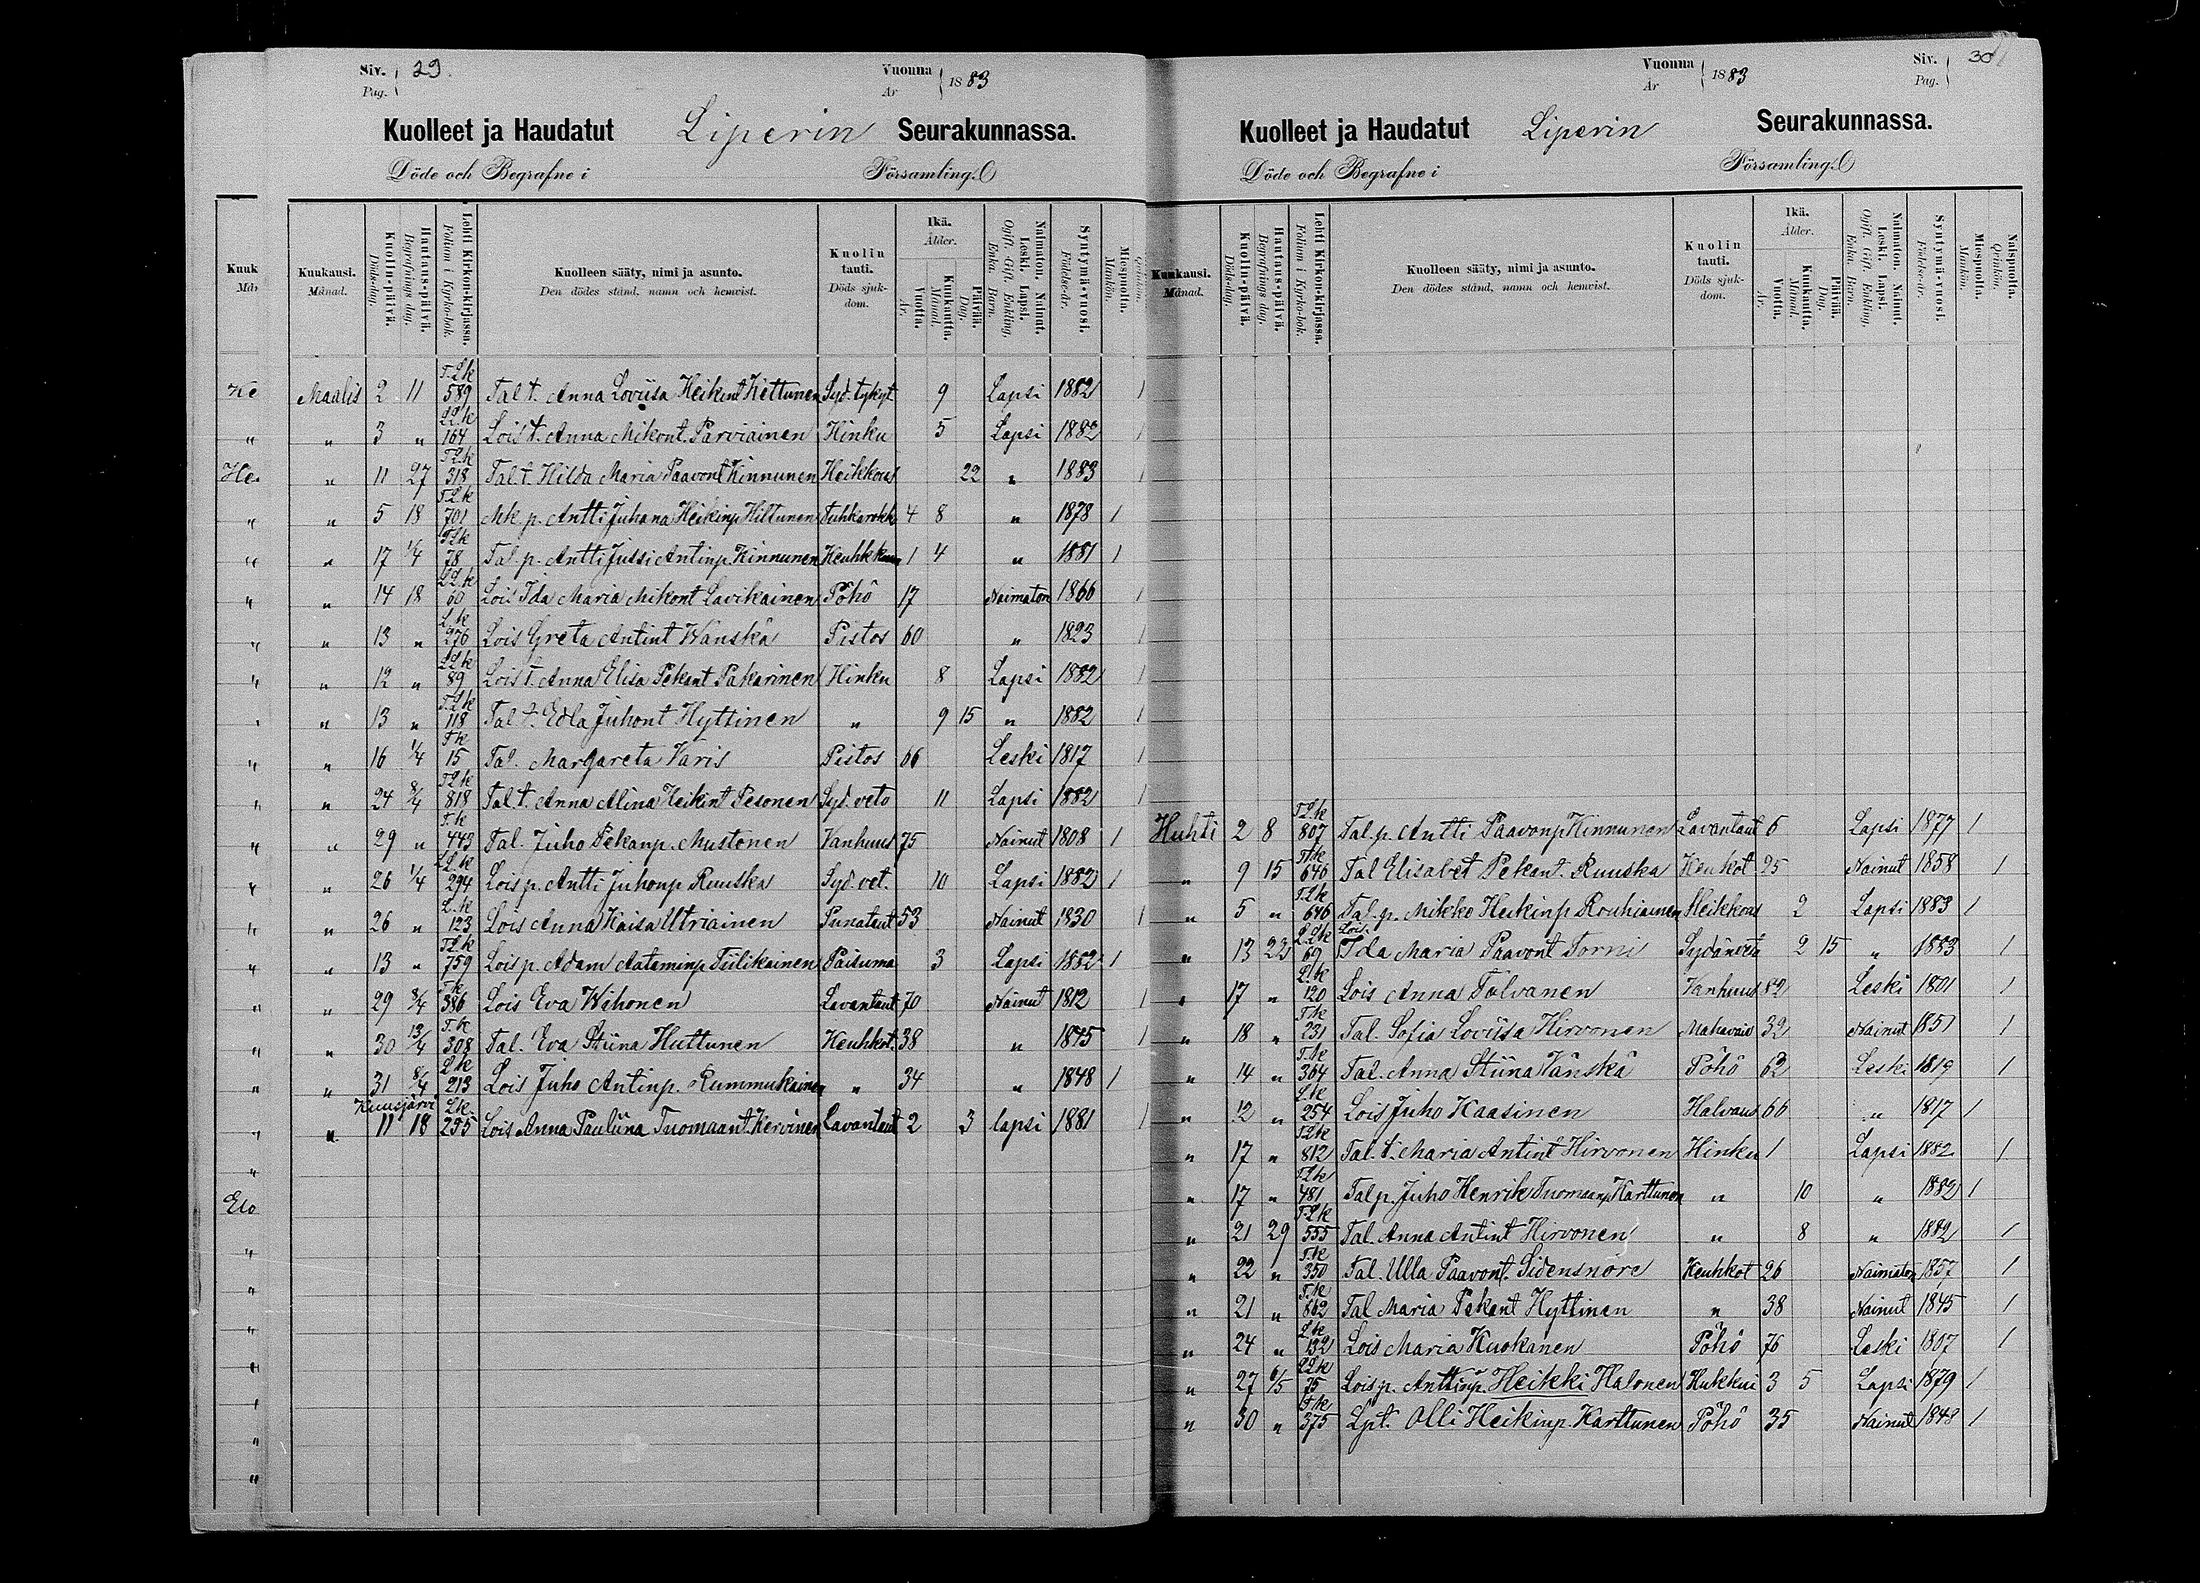 Siv. Pag. 29.
Vuonna År 1883
Kuolleet ja Haudatut Liperin Seurakunnassa.
Döde och Begrafne i Församling.
Kuukausi. Månad.
Kuolin-päivä. Dödsdag.
Hautaus-päivä. Begrafnings dag.
Lehti Kirkon-kirjassa. Folium i Kyrko-bok.
Kuolleen sääty, nimi ja asunto. Den dödes stånd, namn och hemvist.
Kuolin tauti. Döds sjukdom.
Ikä. Ålder.
Vuotta. År.
Kuukautta. Månad.
Päivää. Dag.
Naimaton. Nainut. Leski. Lapsi. Ogift. Gift. Enkling. Enka. Barn.
Syntymä-vuosi. Födelse-år.
Miespuolta. Mankön.
Maalis 2 11 T.Lk 589 Tal t. Anna Loviisa Heikint Kettunen Syd. tykyt 9 Lapsi 1882 1
" 3 " LLk 164 Lois t. Anna Mikont. Parviainen Hinku 5 Lapsi 1882 1
" 11 27 T.Lk 318 Tal t. Hilda Maria Paavont Kinnunen Heikkous 22 " 1883 1
" 5 18 T.Lk 701 Mk. p. Antti Juhana Heikinp Hiltunen Tuhkarokk 4 8 " 1878 1
" 17 1/4 T.Lk 78 Tal. p. Antti Jussi Antinp. Kinnunen 1 4 " 1881 1
" 14 18 LLk 60 Lois Ida Maria Mikont Lavikainen Pöhö 17 Naimaton 1866 1
" 13 " L.k 276 Lois Greta Antint Wänskä Pistos 60 " 1823 1
" 12 " LLk 89 Lois t. Anna Elisa Pekant Pakarinen Hinku 8 Lapsi 1882 1
" 13 " T.Lk 118 Tal t. Edla Juhont Hyttinen " 9 15 " 1882 1
" 16 1/4 T.k 15 Tal. Margareta Varis Pistos 66 Leski 1817 1
" 24 8/4 T.Lk 818 Tal t. Anna Alina Heikint Pesonen Syd. veto 11 Lapsi 1882 1
" 29 " T.k 443 Tal. Juho Pekanp. Mustonen Vanhuus 75 Nainut 1808 1
" 26 1/4 LLk 294 Lois p. Antti Juhonp Ruuska Syd. vet. 10 Lapsi 1882 1
" 26 " L.k 123 Lois Anna Kaisa Utriainen Punataut 53 Nainut 1830 1
" 13 " T.Lk 759 Lois p. Adam Aataminp Tiilikainen Paisuma 3 Lapsi 1882 1
" 29 8/4 T.k 386 Lois Eva Wihonen Lavantaut 70 Nainut 1812 1
" 30 13/4 T.k 308 Tal. Eva Stiina Huttunen Keuhkot. 38 " 1845 1
" 31 8/4 L.k 213 Lois Juho Antinp. Rummukainen " 34 " 1848 1
Kuusjärvi
" 11 18 Lk. 255 Lois Anna Pauliina Tuomaant. Kervinen Lavantaut 2 3 lapsi 1881 1
Vuonna År 1883
Siv. Pag. 30
Kuolleet ja Haudatut Liperin Seurakunnassa.
Döde och Begrafne i Församling.
Kuukausi. Månad.
Kuolin-päivä. Dödsdag.
Hautaus-päivä. Begrafnings dag.
Lehti Kirkon-kirjassa. Folium i Kyrko-bok.
Kuolleen sääty, nimi ja asunto. Den dödes stånd, namn och hemvist.
Kuolin tauti. Döds sjukdom.
Ikä. Ålder.
Vuotta. År.
Kuukautta. Månad.
Päivää. Dag.
Naimaton. Nainut. Leski. Lapsi. Ogift. Gift. Enkling. Enka. Barn.
Syntymä-vuosi. Födelse-år.
Miespuolta. Mankön.
Naispuolta. Qvinkön.
Huhti 2 8 T.Lk 807 Tal. p. Antti Paavonp Kinnunen Lavantaut 6 Lapsi 1877 1
" 9 15 T.k 646 Tal Elisabet Pekant. Ruuska Keuhkot 25 Nainut 1858 1
" 5 " T.Lk 646 Tal. p. Mikko Heikinp Rouhiainen Heikkous 2 Lapsi 1883 1
" 13 23 LLk 69 Lois. Ida Maria Paavont Torni Sydänveto 2 15 " 1883 1
" 17 " L.k 120 Lois Anna Tolvanen Vanhuus 82 Leski 1801 1
" 18 " T.k 231 Tal. Sofia Loviisa Hirvonen 32 Nainut 1851 1
" 14 " T.k 364 Tal. Anna Stiina Vänskä Pöhö 62 Leski 1819 1
" 12 " L.k 254 Lois Juho Kaasinen Halvaus 66 " 1817 1
" 17 " T.Lk 812 Tal. t. Maria Antint Hirvonen Hinku 1 Lapsi 1882 1
" 17 " T.Lk 481 Tal p. Juho Henrik Tuomaanp. Karttunen " 10 " 1882 1
" 21 29 T.Lk 555 Tal. Anna Antint Hirvonen " 8 " 1882 1
" 22 " T.k 350 Tal. Ulla Paavont. Sidensnöre Keuhkot 26 Naimaton 1857 1
" 21 " T.k 862 Tal Maria Pekant Hyttinen " 38 Nainut 1845 1
" 24 " L.k 132 Lois Maria Kuokanen Pöhö 76 Leski 1807 1
" 27 6/5 LLk 75 Lois p. Anttinp. Heikki Halonen Kukkui 3 5 Lapsi 1879 1
" 30 " T.k 375 Lpt. Olli Heikinp. Karttunen Pöhö 35 Nainut 1848 1